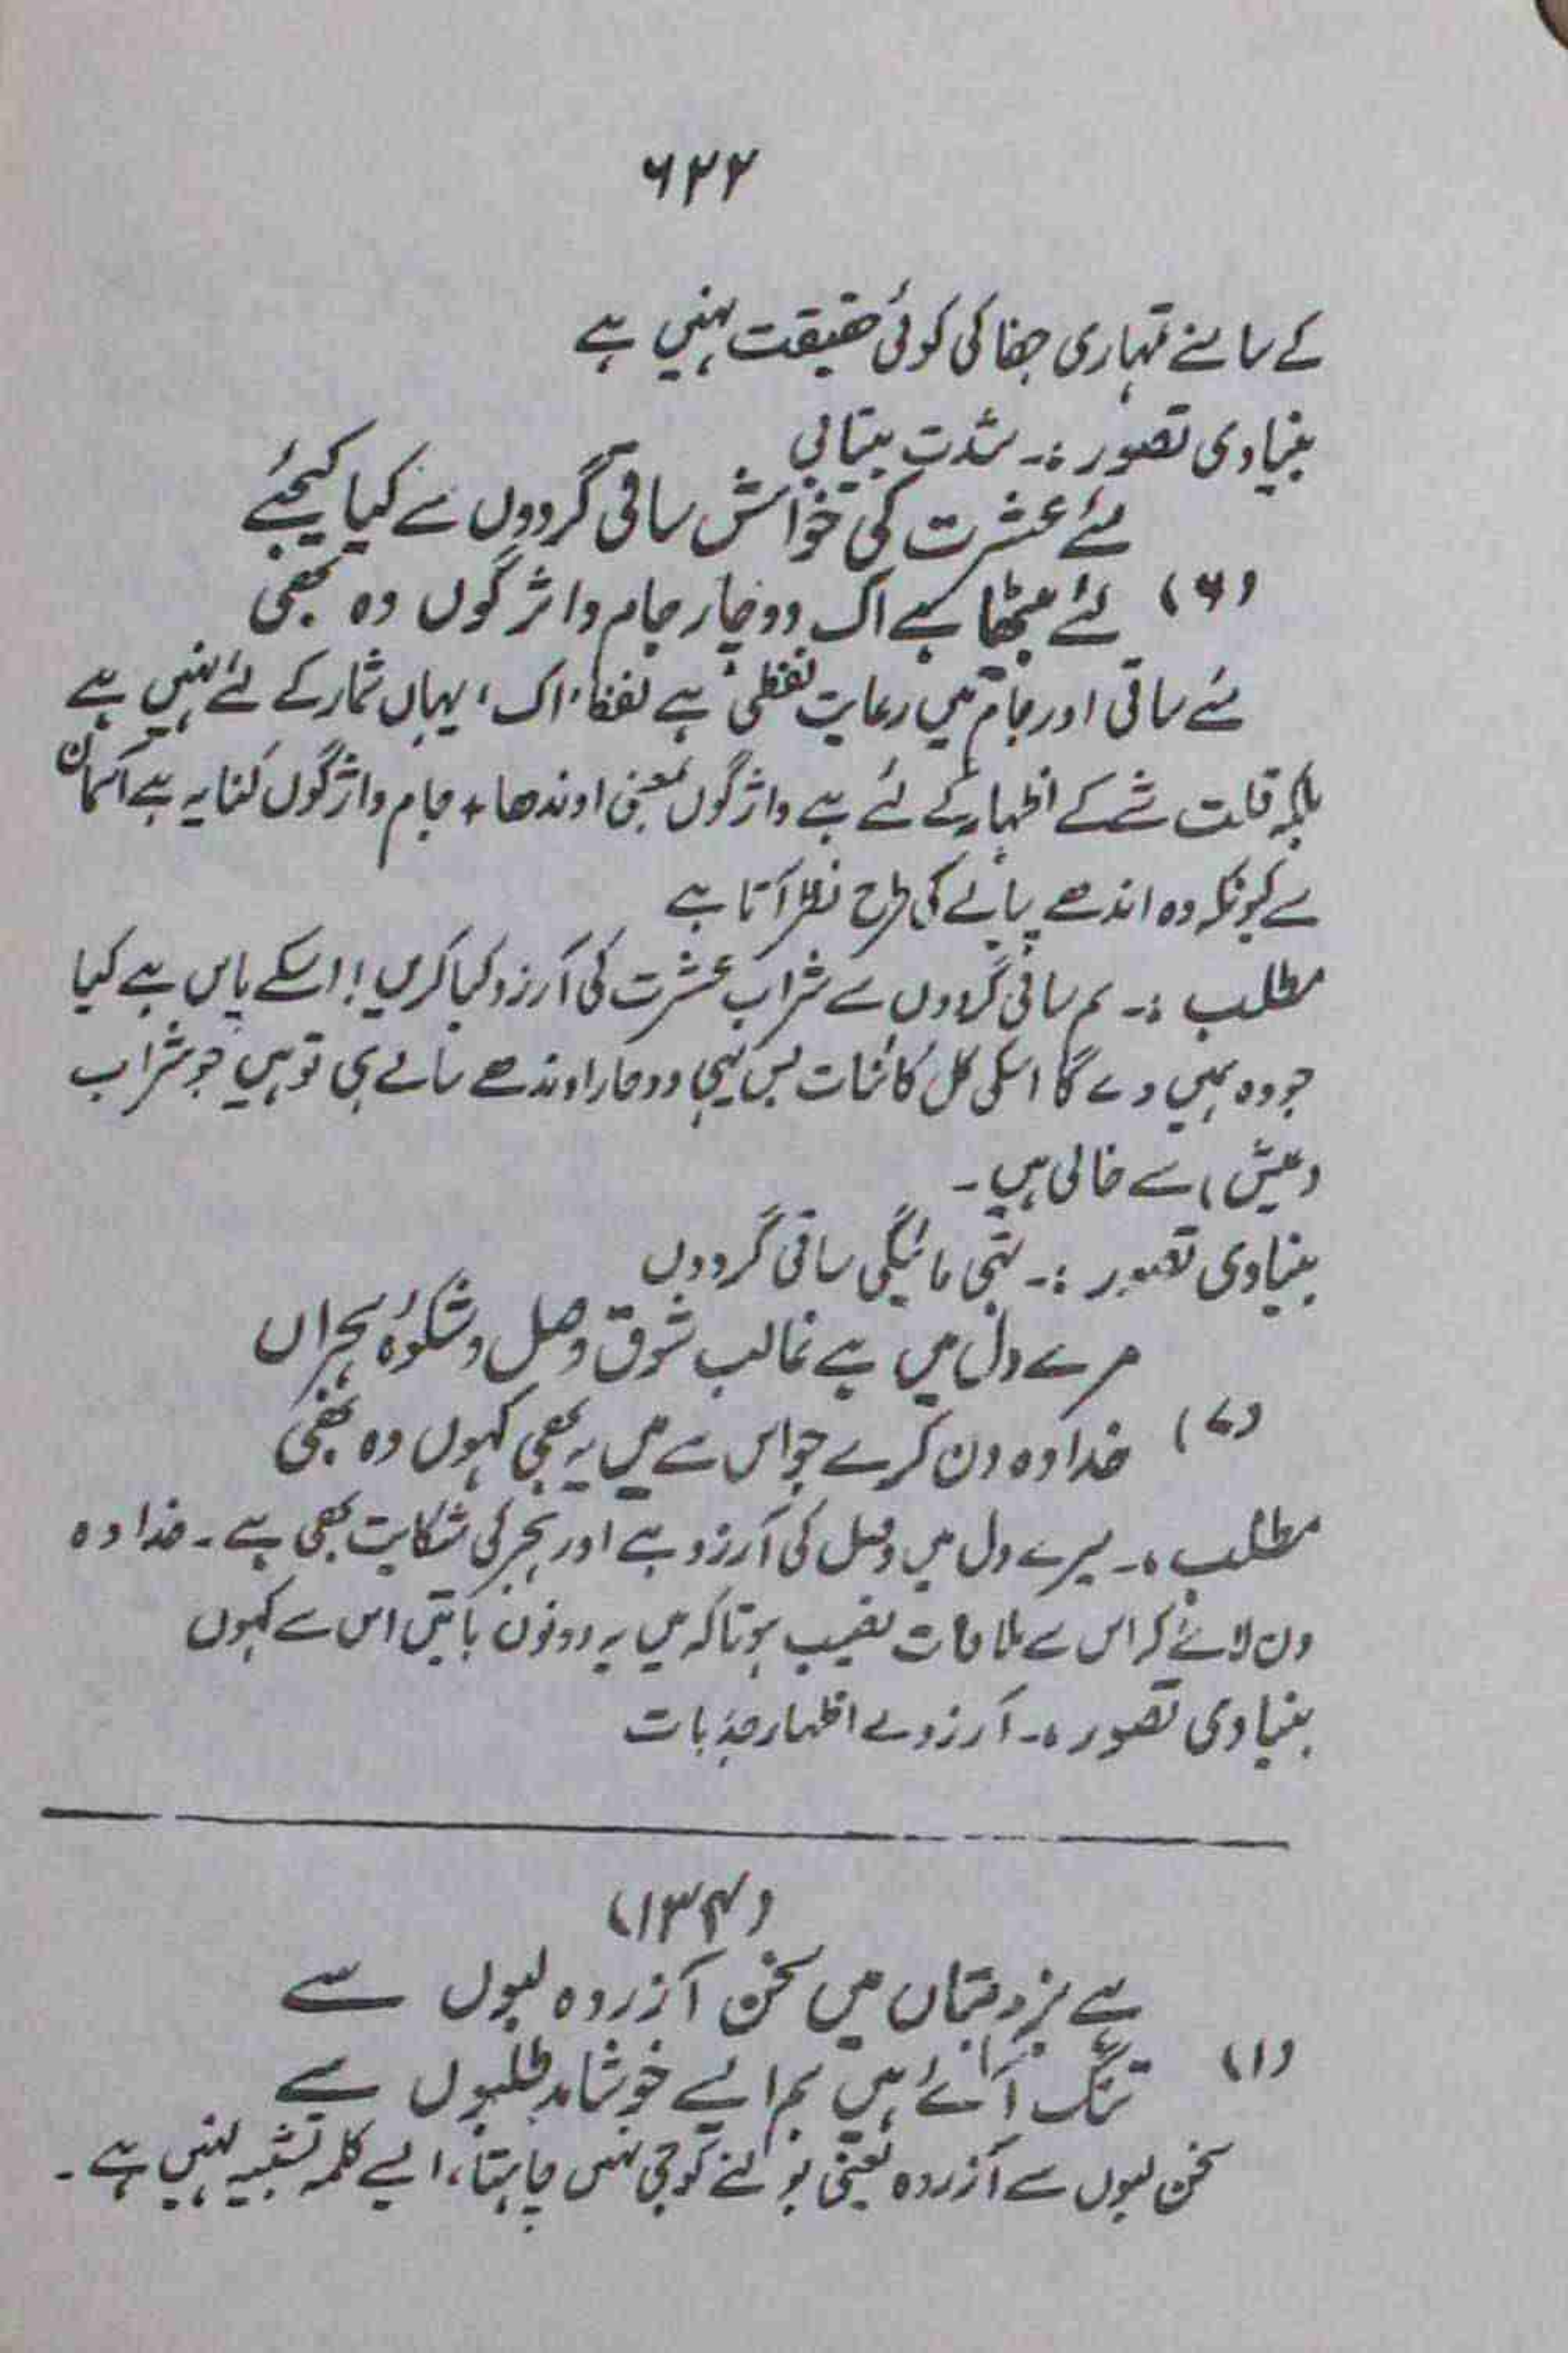 ۶۲۲
کے سامنے تمہاری جفا کی کوئی حقیقت نہیں ہے
بنیادی تصور :۔ شدت بیتابی
مئے عشرت کی خواہش ساقی گردوں سے کیا کیجئے
(۶) لئے بیٹھا ہے اک دو چار جام واژگوں وہ بھی
مئے ساقی اور جام میں رعایت لفظی ہے لفظ 'اک' یہاں شمار کے لئے نہیں ہے
بلکہ قلت شے کے اظہار کے لئے ہے واژگوں بمعنی اوندھا، جام واژگوں کنایہ ہے آسمان
سے کیونکہ وہ اندھے پیالے کی طرح نظر آتا ہے
مطلب :۔ ہم ساقی گردوں سے شراب عشرت کی آرزو کیا کریں! اسکے پاس ہے کیا
جو وہ ہمیں دے گا اسکی کل کائنات بس یہی دو چار اوندھے پیالے ہی تو ہیں جو شراب
(عیش) سے خالی ہیں۔
بنیادی تصور :۔ تہی مائیگی ساقی گردوں
مرے دل میں ہے غالب شوق وصل و شکوۂ ہجراں
(۷) خدا وہ دن کرے جو اس سے میں یہ بھی کہوں وہ بھی
مطلب :۔ میرے دل میں وصل کی آرزو ہے اور ہجر کی شکایت بھی ہے۔ خدا وہ
دن لائے کہ اس سے ملاقات نصیب ہو تاکہ میں یہ دونوں باتیں اس سے کہوں
بنیادی تصور :۔ آرزوئے اظہار جذبات
(۱۳۴)
ہے بزم بتاں میں سخن آزردہ لبوں سے
(۱) تنگ آئے ہیں ہم ایسے خوشامد طلبوں سے
سخن لبوں سے آزردہ یعنی بولنے کو جی نہیں چاہتا، ایسے کلمہ تشبیہ نہیں ہے۔